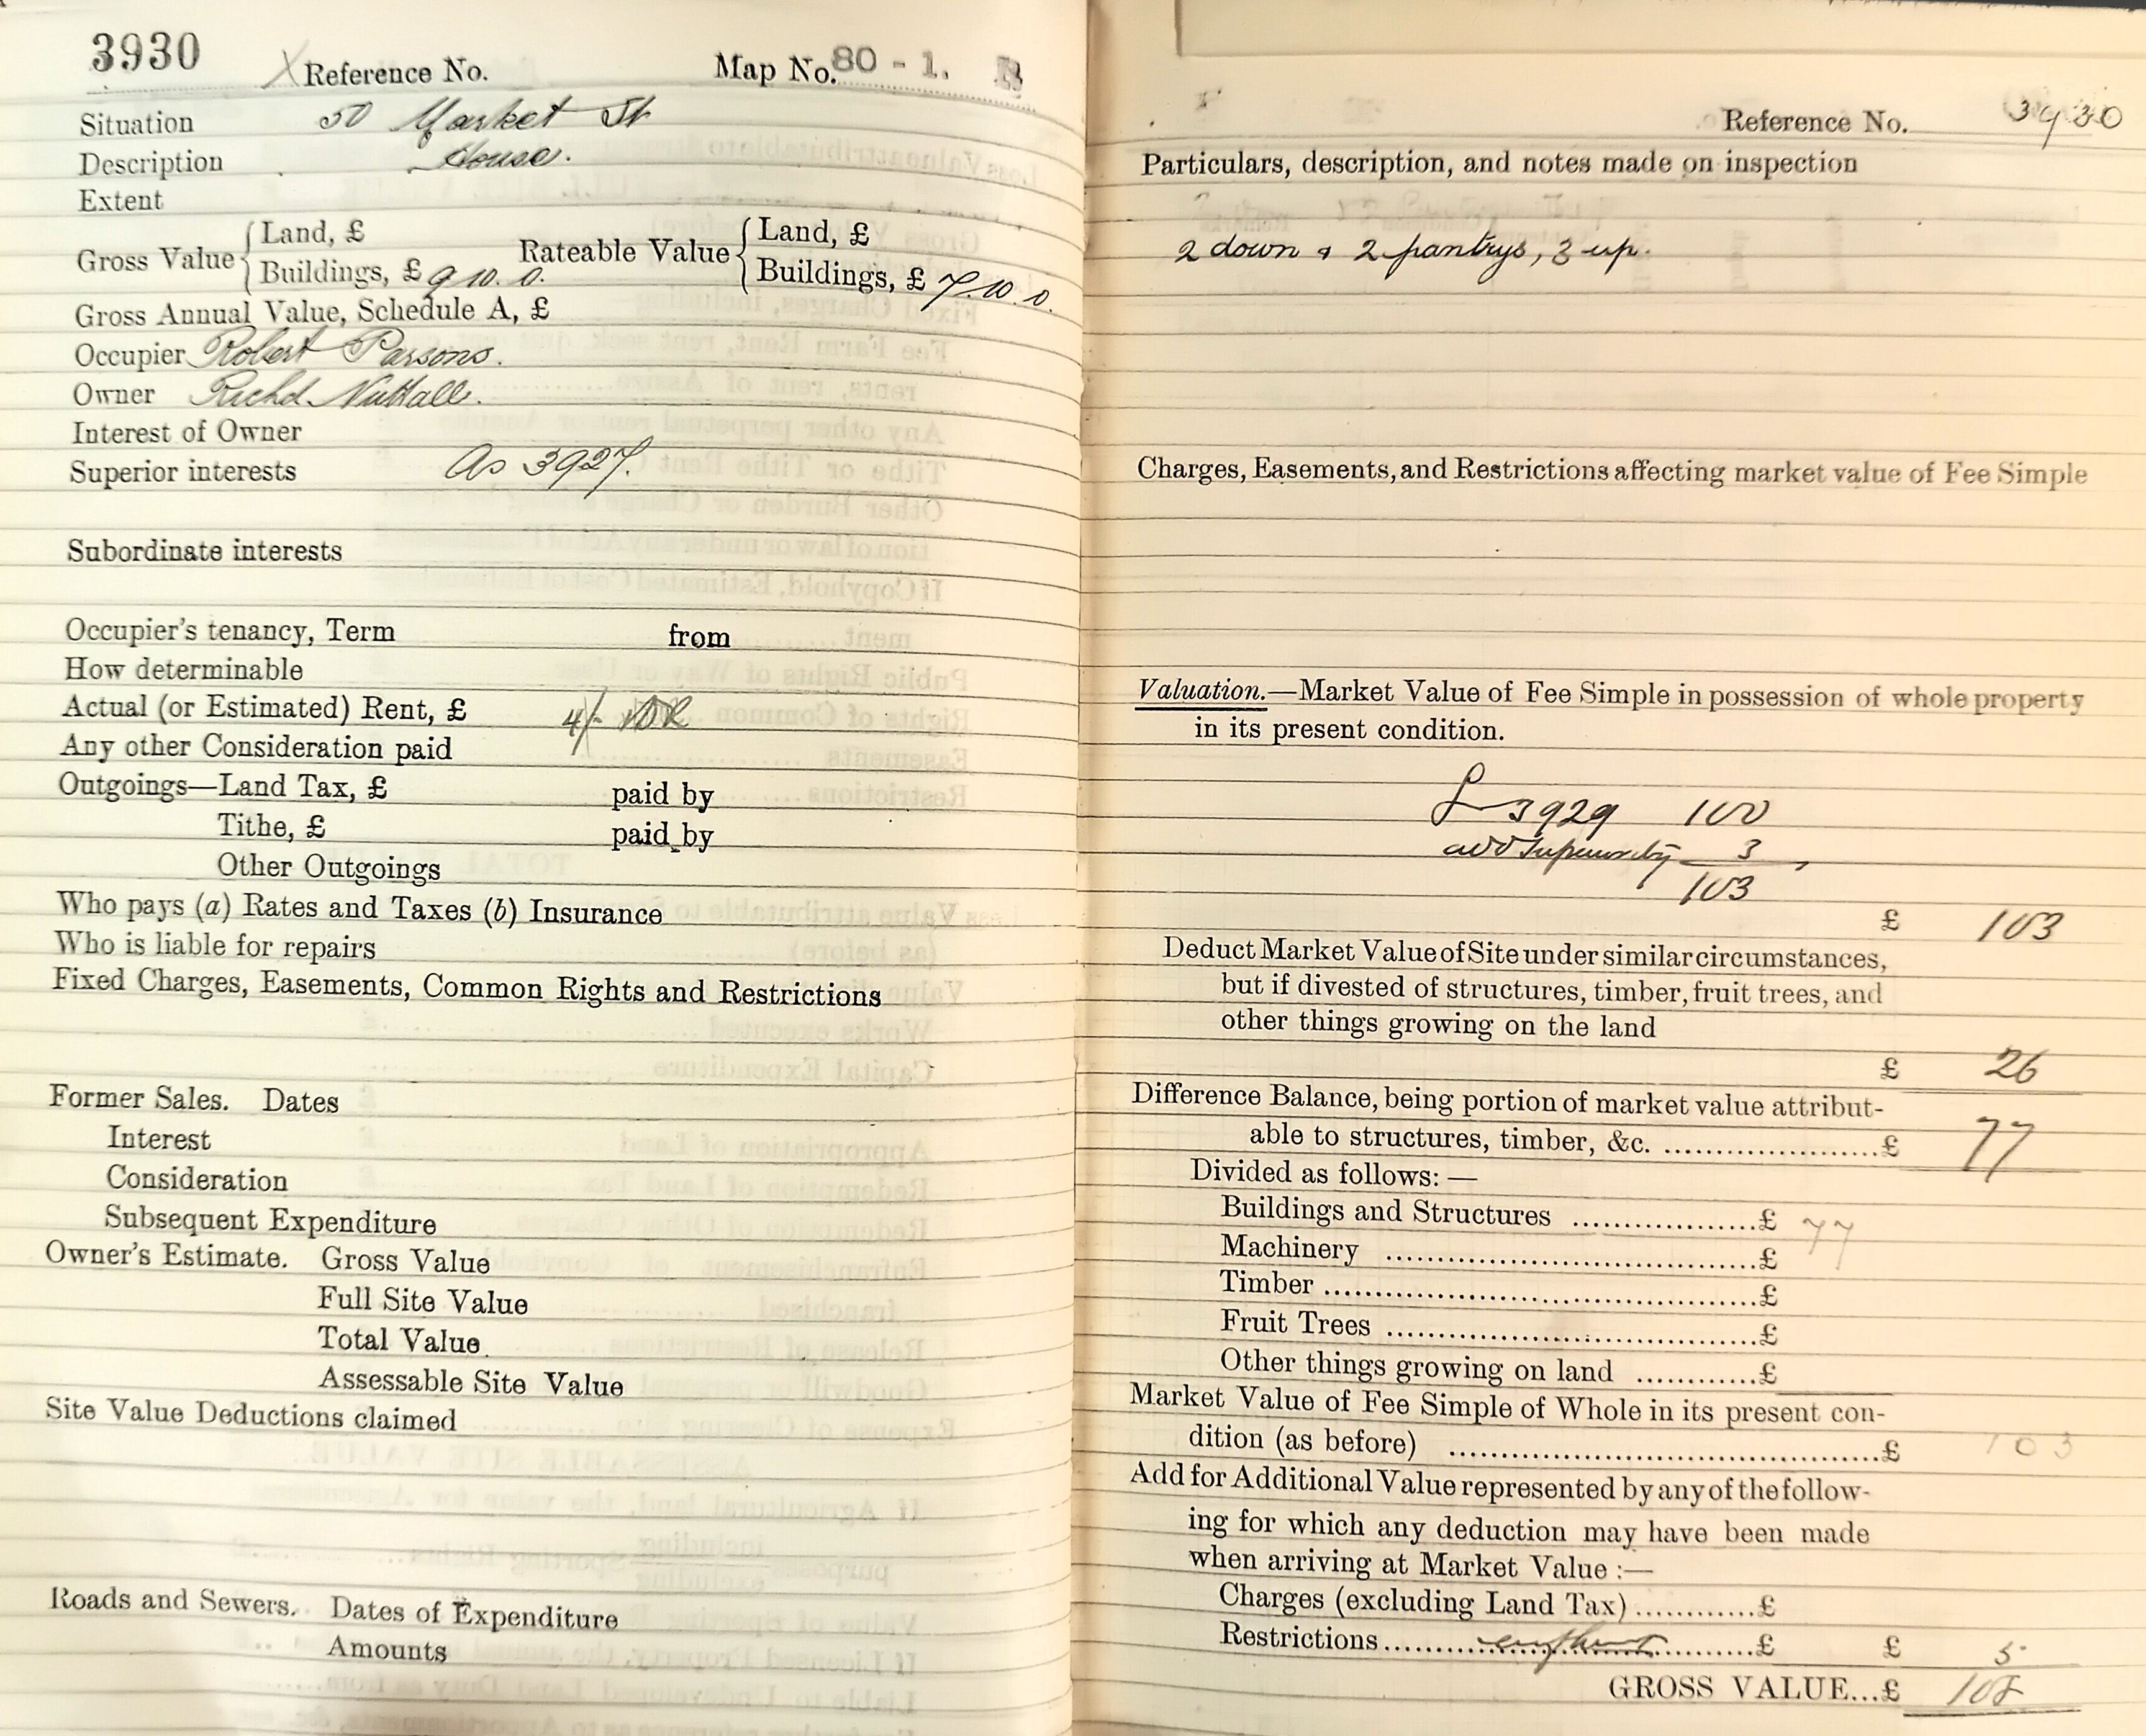 3930 Reference No. Map No. 80 - 1. B
Situation 50 Market St
Description House.
Extent
Gross Value { Land, £ Rateable Value { Land, £
Buildings, £ 9. 10. 0. Buildings, £ 7. 10. 0.
Gross Annual Value, Schedule A, £
Occupier Robert Parsons.
Owner Richd Nuttall.
Interest of Owner
Superior interests As 3927.
Subordinate interests
Occupier's tenancy, Term from
How determinable
Actual (or Estimated) Rent, £ 4/-
Any other Consideration paid
Outgoings—Land Tax, £ paid by
Tithe, £ paid by
Other Outgoings
Who pays (a) Rates and Taxes (b) Insurance
Who is liable for repairs
Fixed Charges, Easements, Common Rights and Restrictions
Former Sales. Dates
Interest
Consideration
Subsequent Expenditure
Owner's Estimate. Gross Value
Full Site Value
Total Value
Assessable Site Value
Site Value Deductions claimed
Roads and Sewers. Dates of Expenditure
Amounts
Reference No. 3930
Particulars, description, and notes made on inspection
2 down & 2 pantrys, 3 up.
Charges, Easements, and Restrictions affecting market value of Fee Simple
Valuation.—Market Value of Fee Simple in possession of whole property
in its present condition.
3929 100
add Superiority 3
103
£ 103
Deduct Market Value of Site under similar circumstances,
but if divested of structures, timber, fruit trees, and
other things growing on the land
£ 26
Difference Balance, being portion of market value attribut-
able to structures, timber, &c. ..................... £ 77
Divided as follows: —
Buildings and Structures ................. £ 77
Machinery ................................... £
Timber ......................................... £
Fruit Trees ................................... £
Other things growing on land ............ £
Market Value of Fee Simple of Whole in its present con-
dition (as before) .......................................... £ 103
Add for Additional Value represented by any of the follow-
ing for which any deduction may have been made
when arriving at Market Value :—
Charges (excluding Land Tax) ............ £
Restrictions .................................. £ £ 5
GROSS VALUE... £ 108